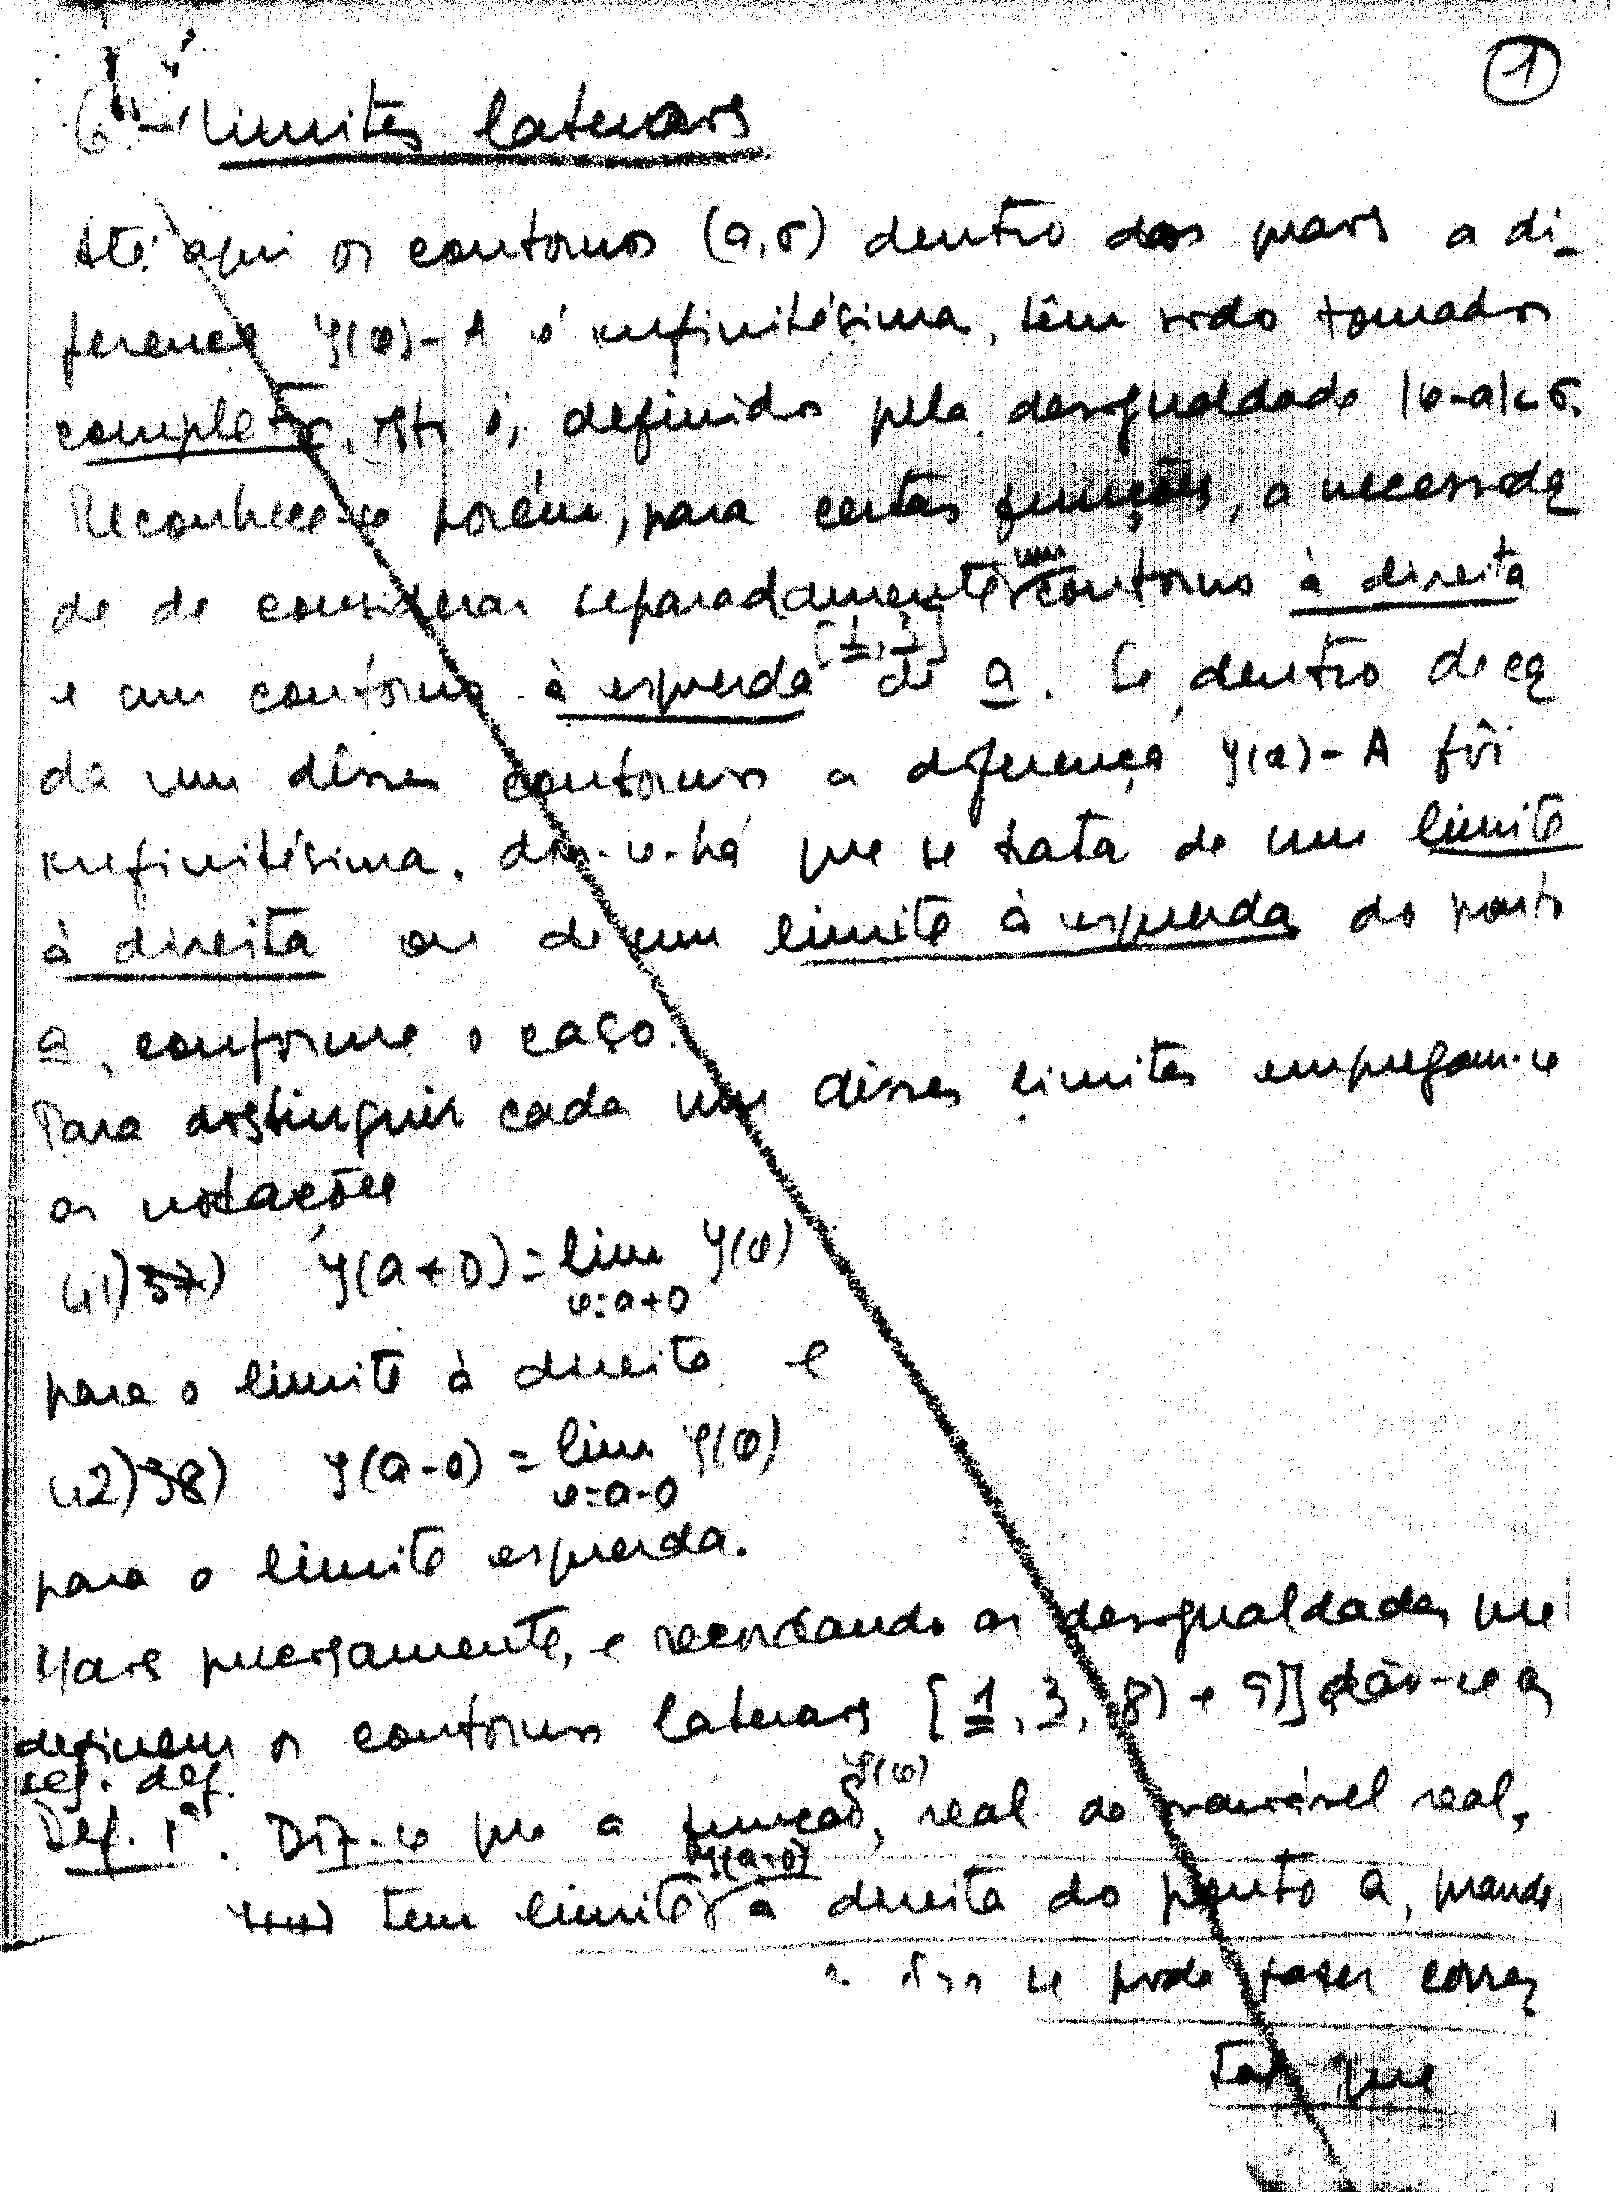 ①
6 - limites laterais
Até aqui os contornos (a,σ) dentro dos quais a di-
ferença y(x)-A é infinitésima, têm sido tomados
completos, isto é, definidos pela desigualdade |x-a|<σ.
Reconhece-se porém, para certas funções, a necessida
de de considerar separadamente um contorno à direita
e um contorno à esquerda [1,3] de a. Se, dentro de ca
da um dêsses contornos a diferença y(x)-A fôr
infinitésima, dir-se-há que se trata de um limite
à direita ou de um limite à esquerda do ponto
a, conforme o caso.
Para distinguir cada um dêsses limites empregam-se
as notações
41) 37) y(a+0) = lim y(x)
x=a+0
para o limite à direita e
42) 38) y(a-0) = lim y(x)
x=a-0
para o limite esquerda.
Mais precisamente, e recordando as desigualdades que
definem os contornos laterais [1, 3, 8) e 9)] dão-se as
seg. def.
Def. 1ª. Diz-se que a função y(x), real da variável real,
tem limite y(a+0) à direita do ponto a, quando
se pode fazer corres
tal que